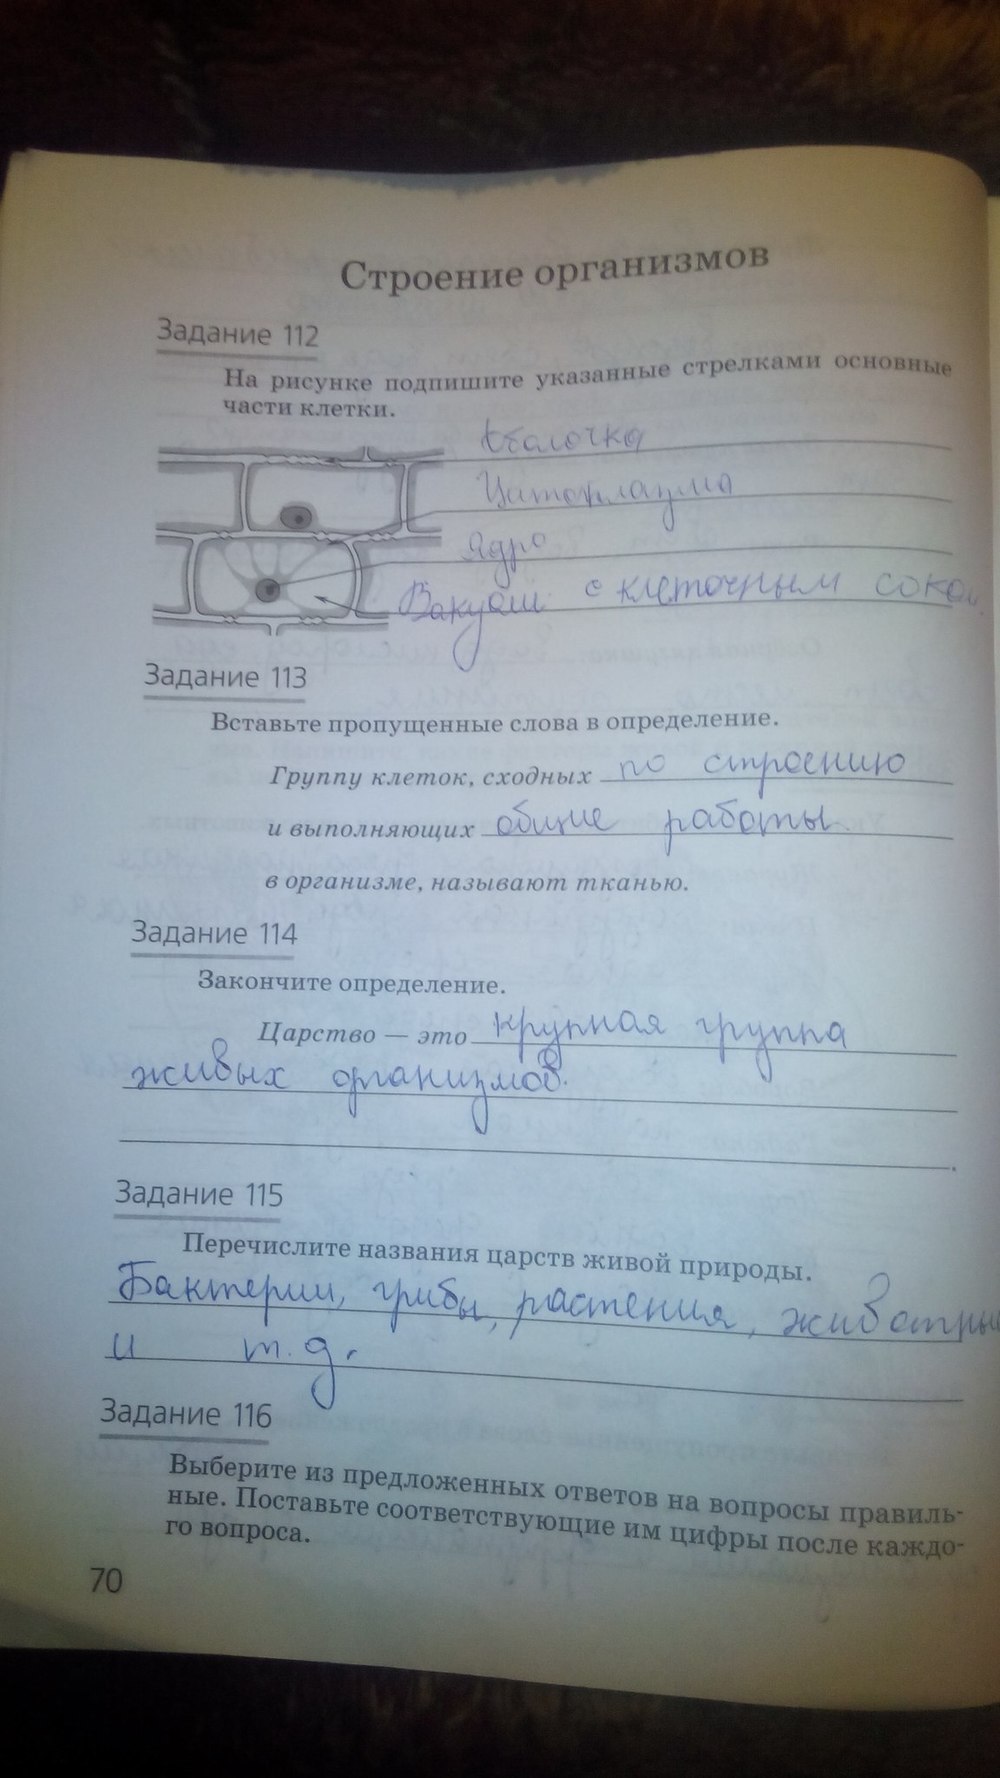 Строение организмов
Задание 112
На рисунке подпишите указанные стрелками основные
части клетки.
Оболочка
Цитоплазма
Ядро
Вакуоли с клеточным соком
Задание 113
Вставьте пропущенные слова в определение.
Группу клеток, сходных по строению
и выполняющих общие работы
в организме, называют тканью.
Задание 114
Закончите определение.
Царство — это крупная группа
живых организмов.
.
Задание 115
Перечислите названия царств живой природы.
Бактерии, грибы, растения, животные
и т.д.
Задание 116
Выберите из предложенных ответов на вопросы правиль-
ные. Поставьте соответствующие им цифры после каждо-
го вопроса.
70